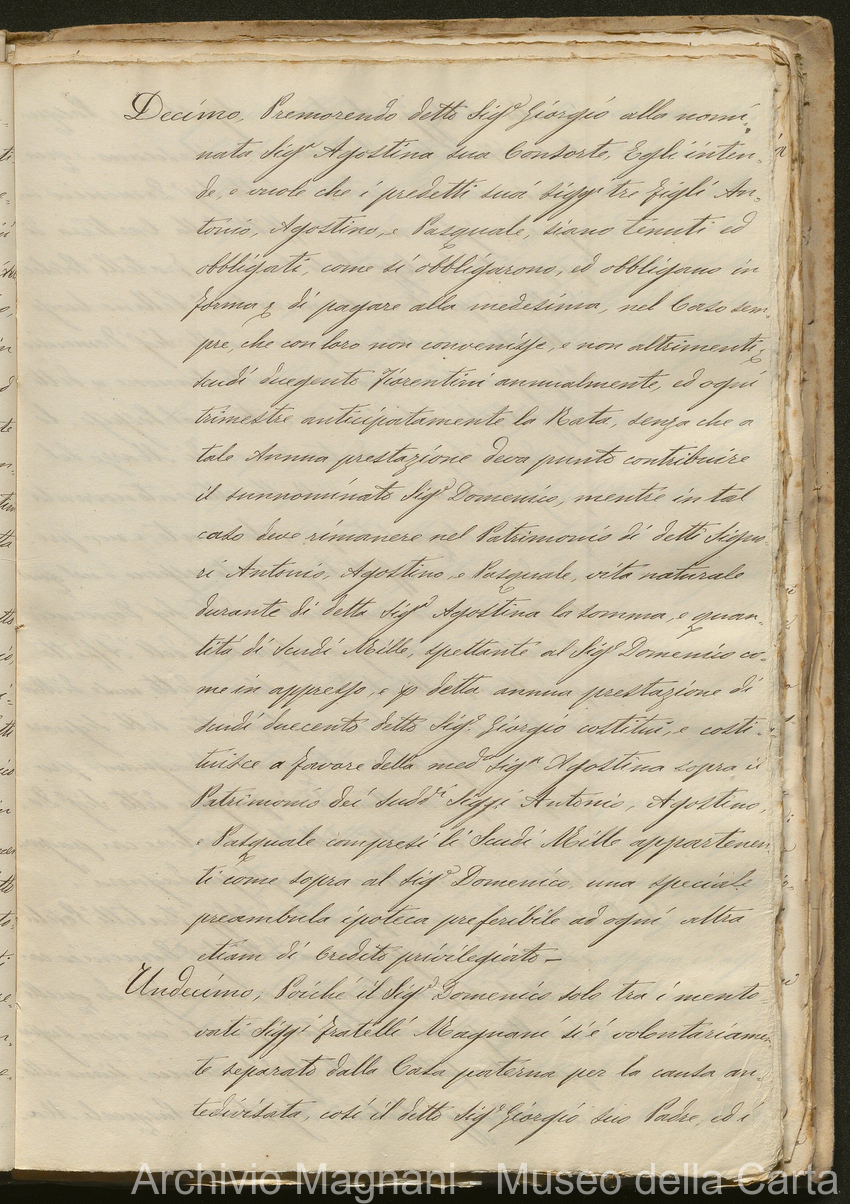 Decimo, Premorendo detto Sig.r Giorgio alla nomi,,
nata Sig.ra Agostina sua Consorte, Egli inten,,
de, e vuole che i predetti suoi Sigg.ri tre figli An,,
tonio, Agostino, e Pasquale, siano tenuti ed
obbligati, come si obbligarono, ed obbligano in
forma di pagare alla medesima, nel Caso sem,,
pre, che con loro non convenisse, e non altrimenti
scudi duegento Fiorentini annualmente, ed ogni
trimestre anticipatamente la Rata, senza che a
tale Annua prestazione deva punto contribuire
il sunnominato Sig.r Domenico, mentre in tal
caso deve rimanere nel Patrimonio di detti Signo,,
ri Antonio, Agostino, e Pasquale, vita naturale
durante di detta Sig.ra Agostina la somma, e quan,,
tità di Scudi Mille, spettante al Sig.r Domenico co,,
me in appresso, e p detta annua prestazione di
scudi duecento detto Sig.r Giorgio costituì, e costi,,
tuisce a favore della med.a Sig.ra Agostina sopra il
Patrimonio dei sudd.i Sigg.i Antonio, Agostino,
e Pasquale compresi li Scudi Mille appartenen
ti come sopra al Sig.r Domenico una speciale
preambula ipoteca preferibile ad ogni altra
etiam di Credito privilegiato —
Undecimo, Poiché il Sig.r Domenico solo tra i mento,,
vati Sigg.i Fratelli Magnani si è volontariamen,,
te separato dalla Casa paterna per la causa an,,
tedivisata, così il detto Sig.r Giorgio suo Padre, ed i
Archivio Magnani - Museo della Carta